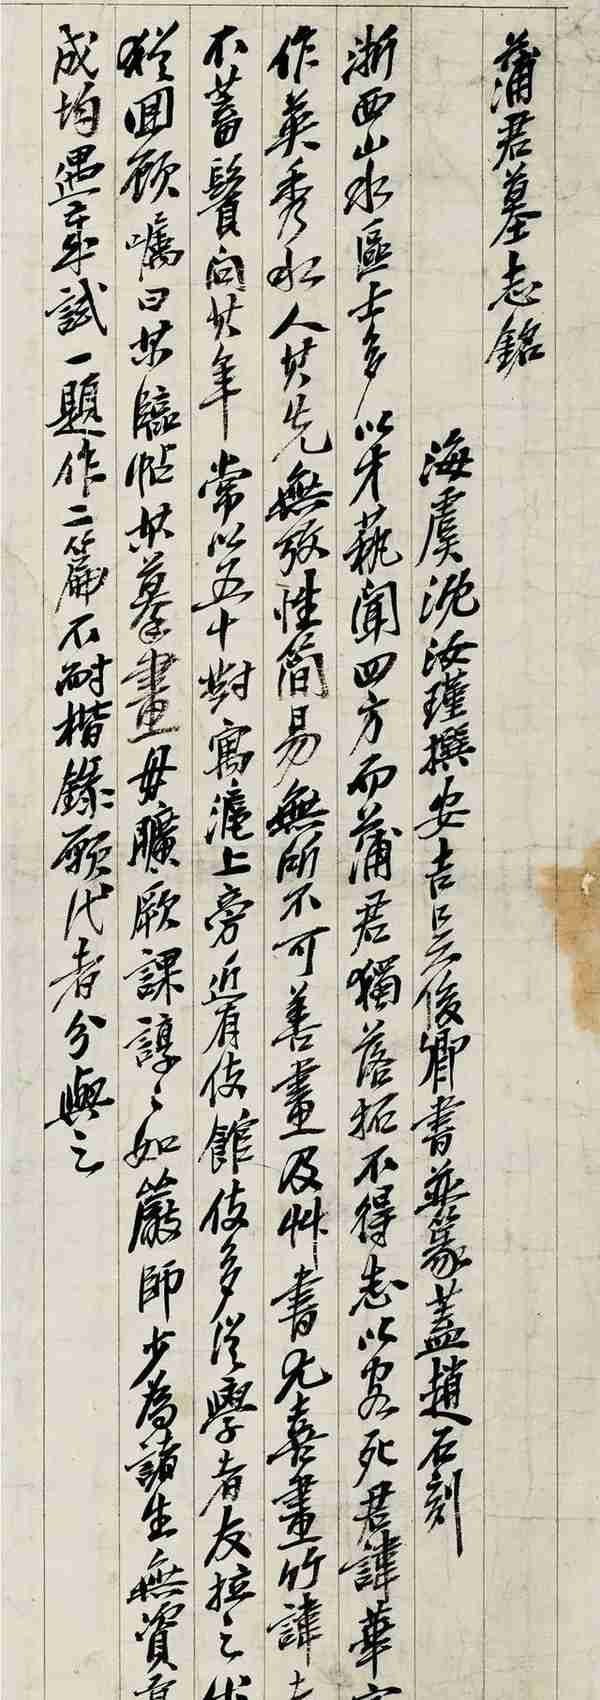 蒲君墓志銘
海虞沈汝瑾撰安吉吳俊卿書並篆蓋趙石刻
浙西山水區士多以才藝聞四方而蒲君獨落拓不得志以客死君諱華字
作英秀水人其先無攷性簡易無所不可善畫及艸書尤喜畫竹諱老
不蓄鬚問其年常以五十對寓滬上旁近有伎館伎多從學者友拉之出
猶回顧囑曰某臨帖某摹畫毋曠厥課諄〻如嚴師少為諸生無資
成均遇章試一題作二篇不耐楷錄願代者分與之